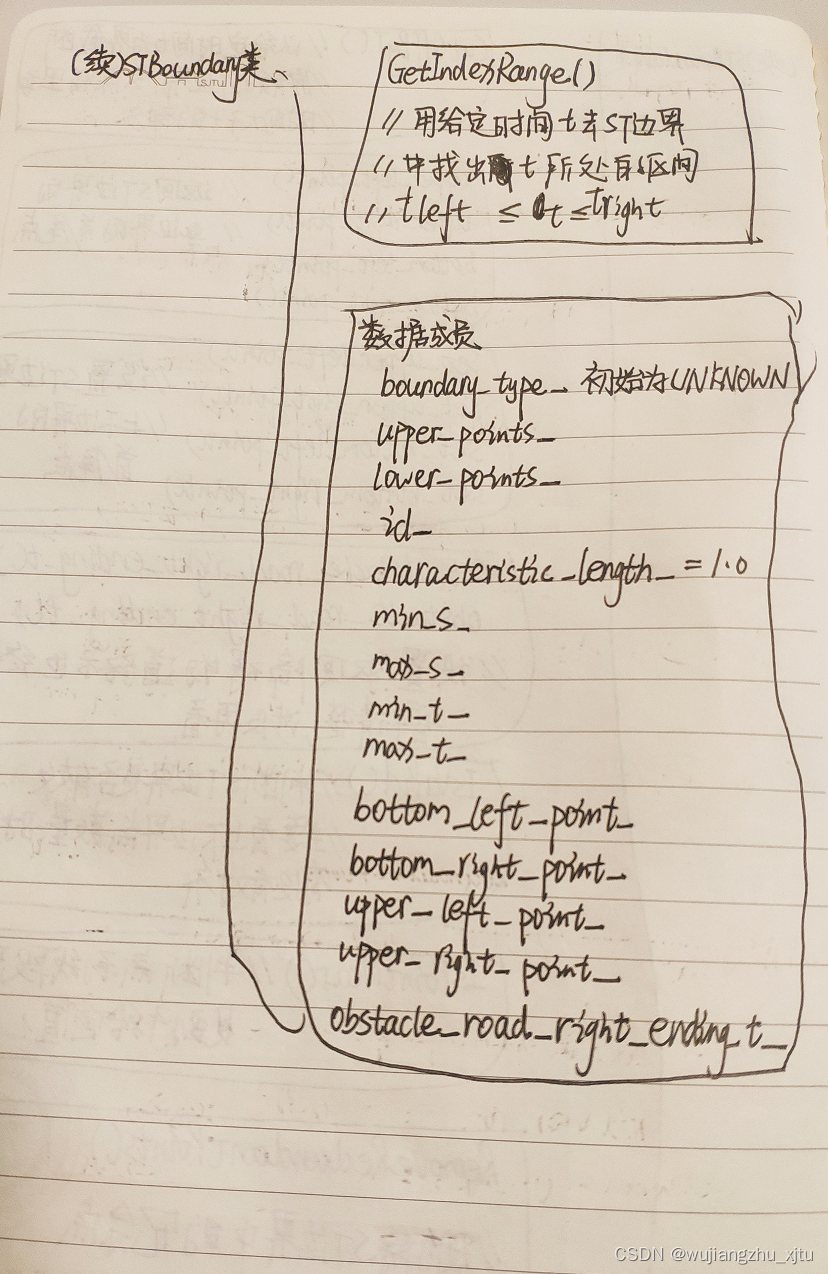 (续)STBoundary类
GetIndexRange()
// 用给定时间t去ST边界
// 中找出t所处的区间
// tleft ≤ t ≤ tright
数据成员
boundary_type_ 初始为UNKNOWN
upper_points_
lower_points_
id_
characteristic_length_ = 1.0
min_s_
max_s_
min_t_
max_t_
bottom_left_point_
bottom_right_point_
upper_left_point_
upper_right_point_
obstacle_road_right_ending_t_
CSDN @wujiangzhu_xjtu